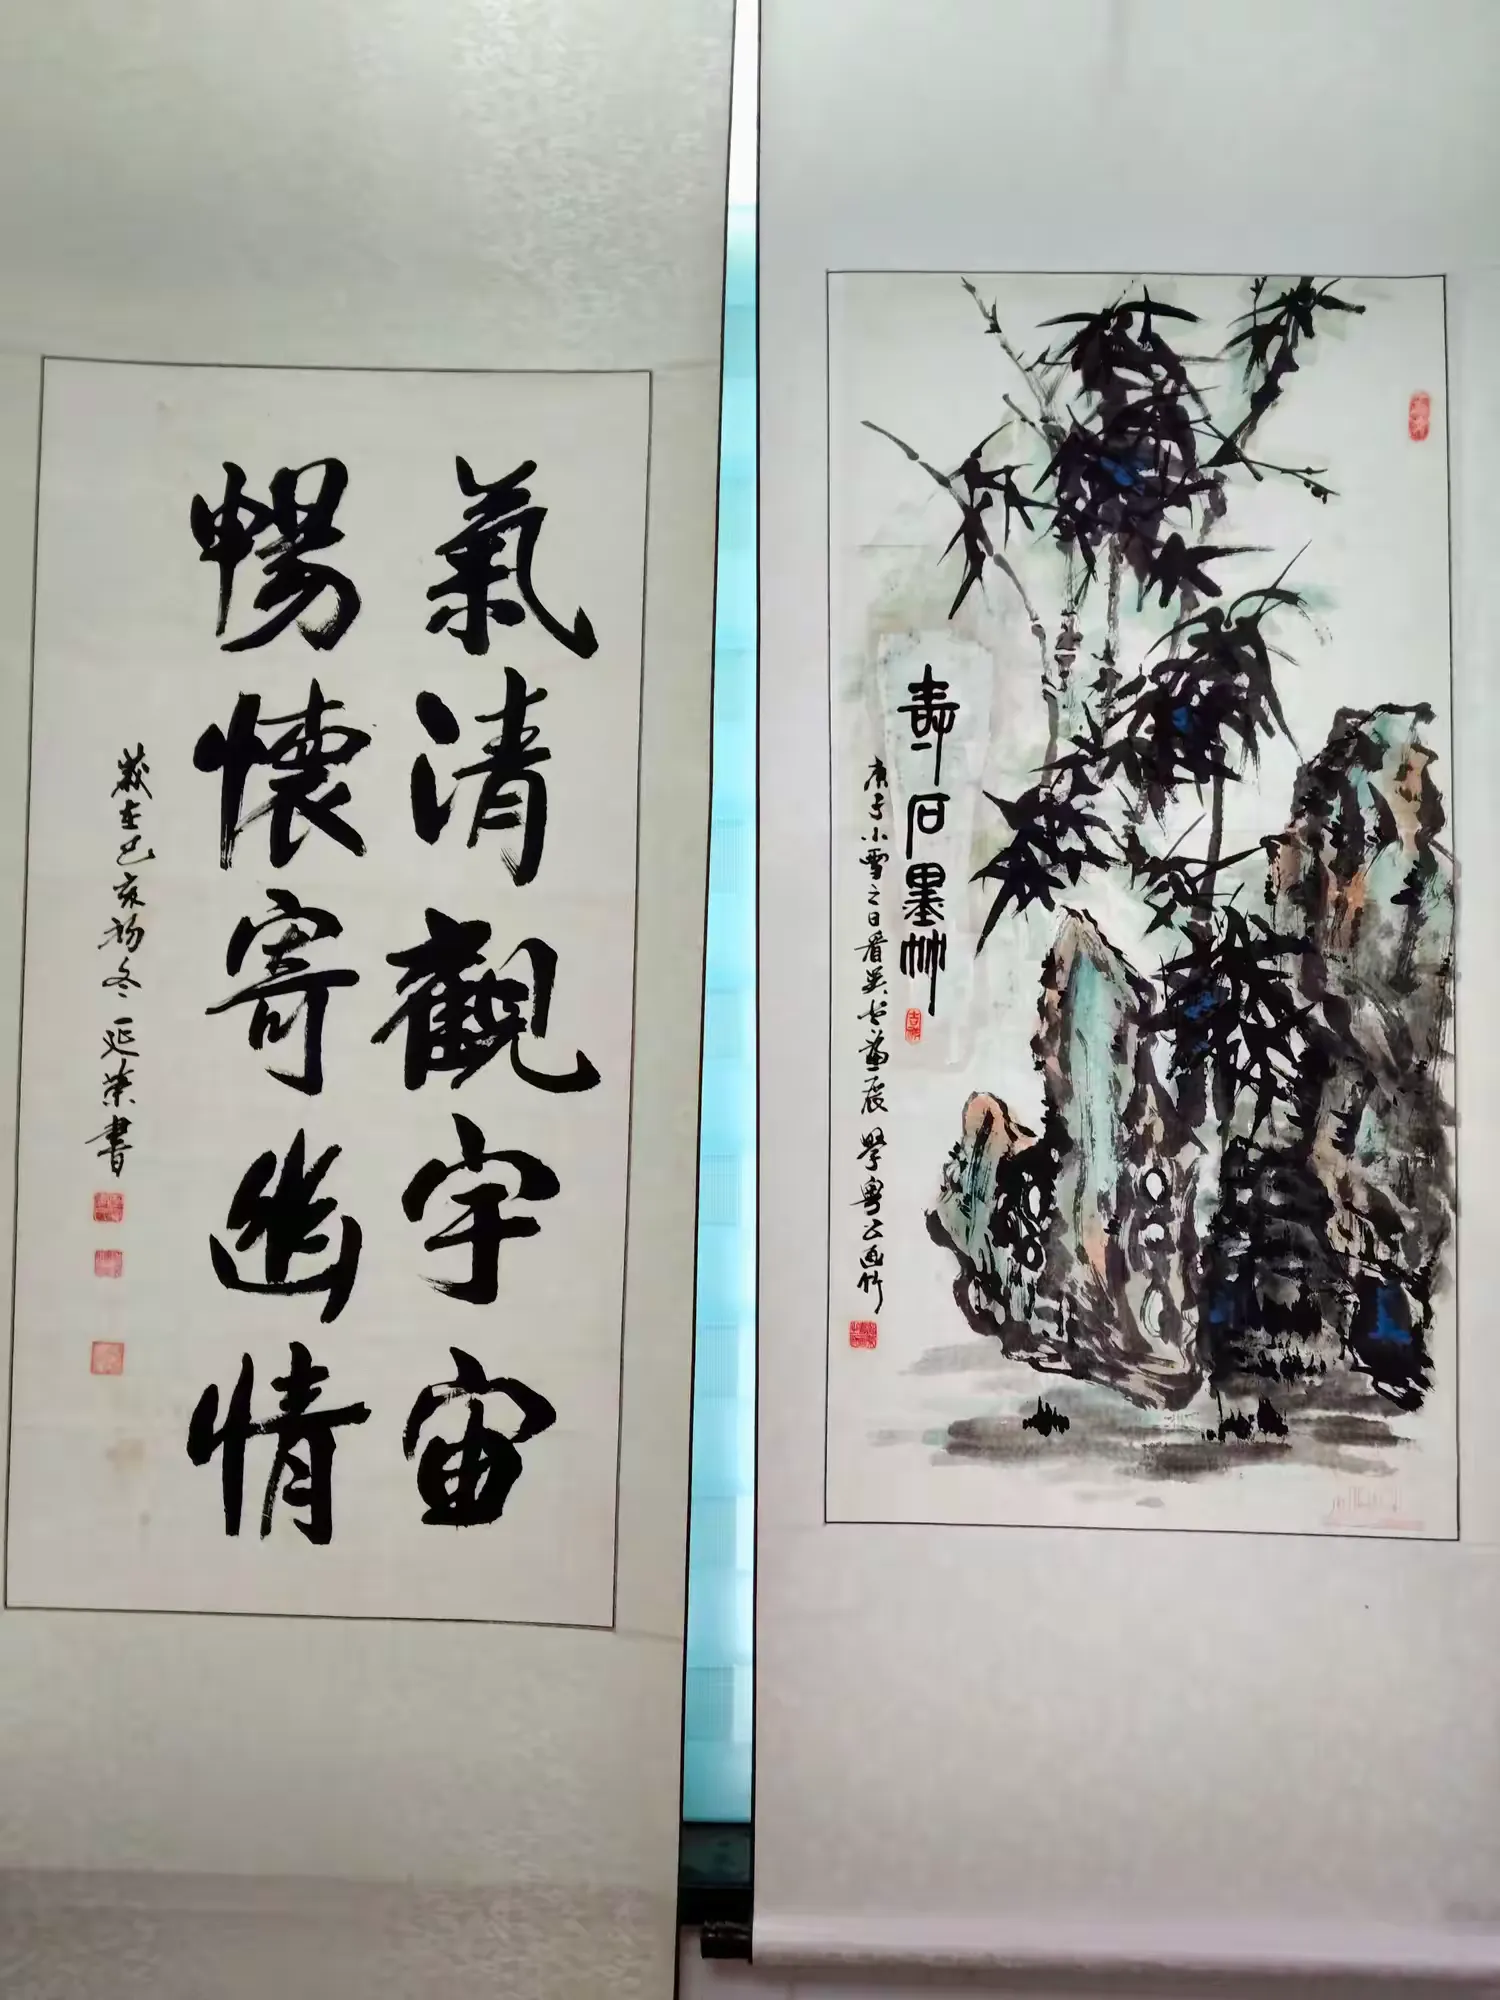 氣清觀宇宙
暢懷寄幽情
歲在己亥初冬延榮書
壽石墨竹
庚子小雪之日看吳 學粵公画竹